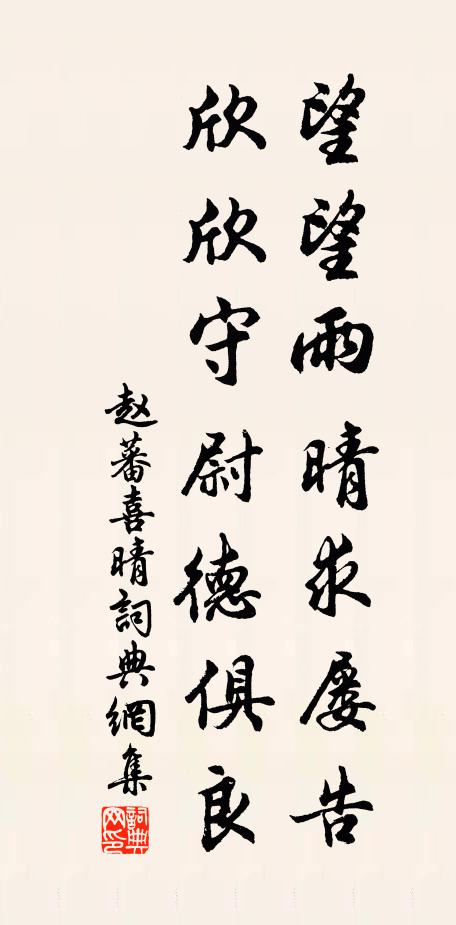 望望雨晴求屡告
欣欣守尉德俱良
赵蕃喜晴詞典網集
詞典网印